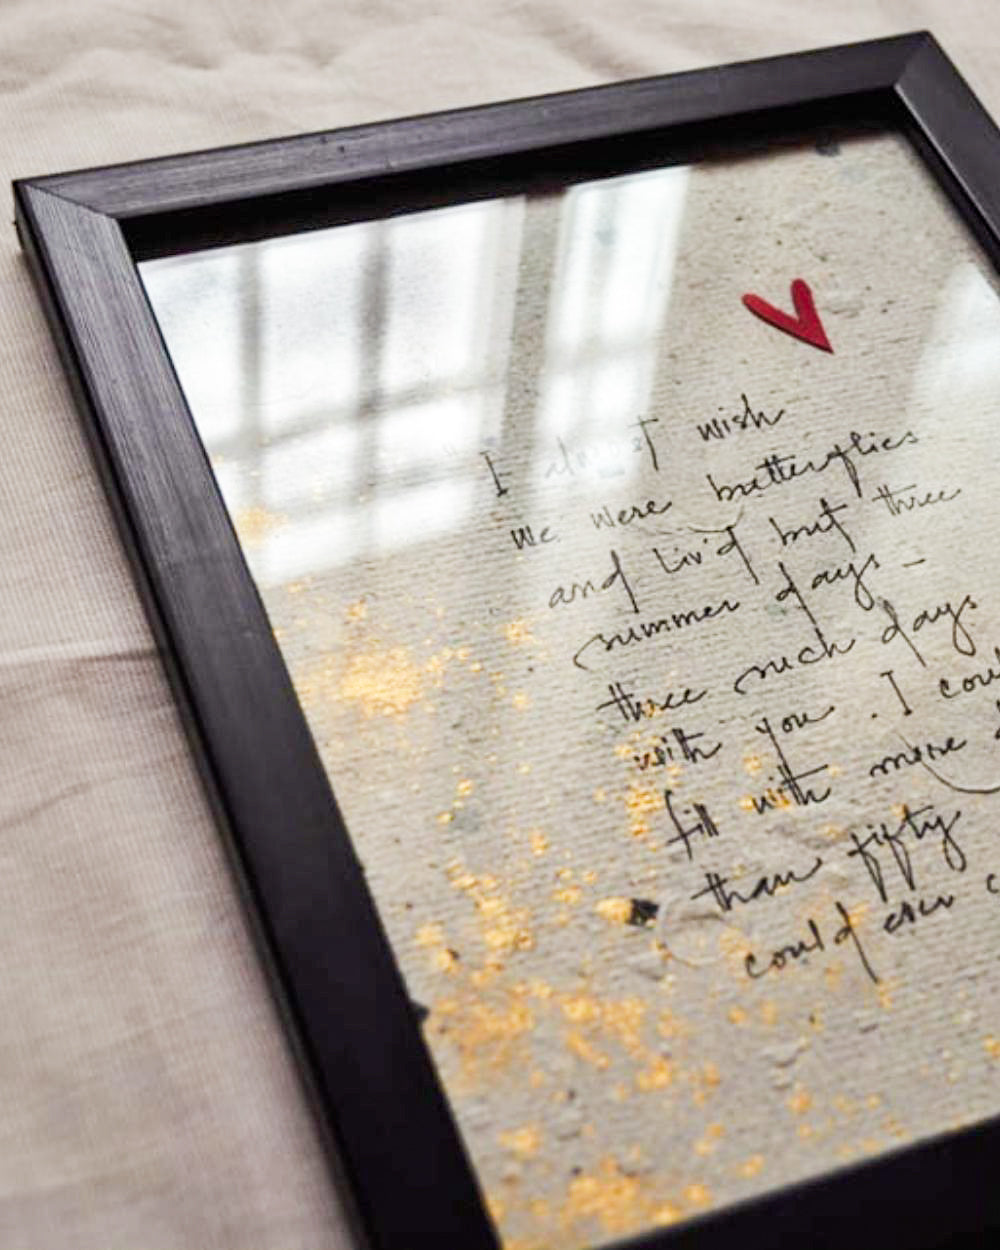 "I almost wish
we were butterflies
and liv'd but three
summer days -
three such days
with you. I
fill with more
than fifty
could ever